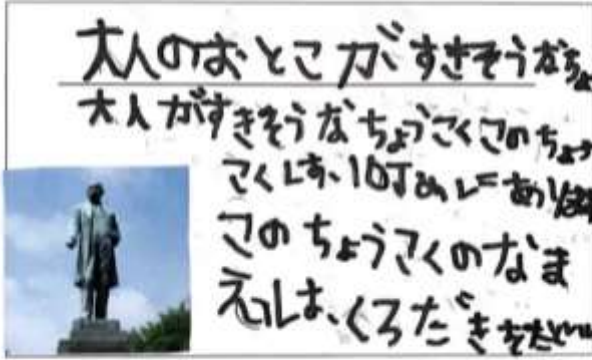 大人のおとこがすきそうなちょ
大人がすきそうなちょうこくこのちょう
こくは、10丁めにあり
このちょうこくのなま
えは、くろだき